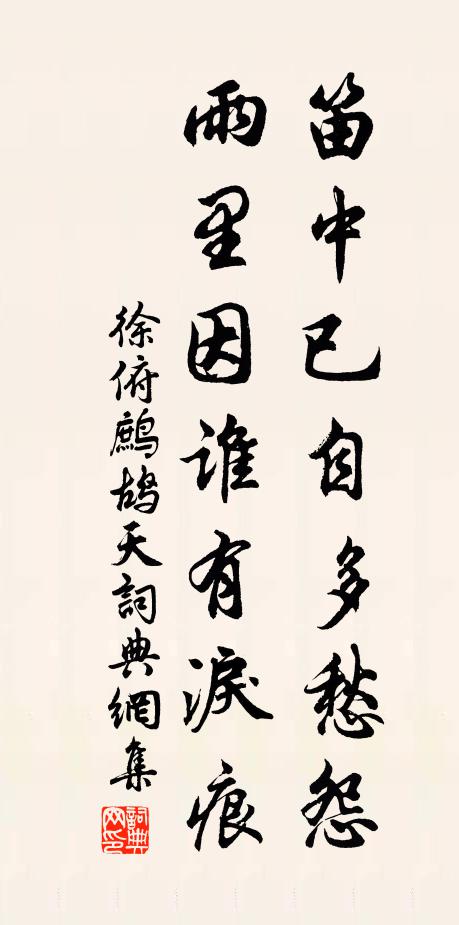 笛中已自多愁怨
雨里因谁有淚痕
徐俯鷓鴣天詞典網集
詞典网印